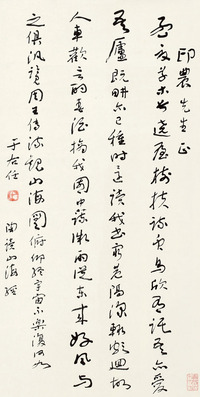 印農先生正
孟夏草木長遶屋樹扶疏眾鳥欣有託吾亦愛
吾廬既耕亦已種時還讀我書窮巷隔深轍頗迴故
人車歡言酌春酒摘我園中蔬微雨從東來好風與
之俱汎覽周王傳流觀山海圖俯仰終宇宙不樂復何如
于右任
陶讀山海經